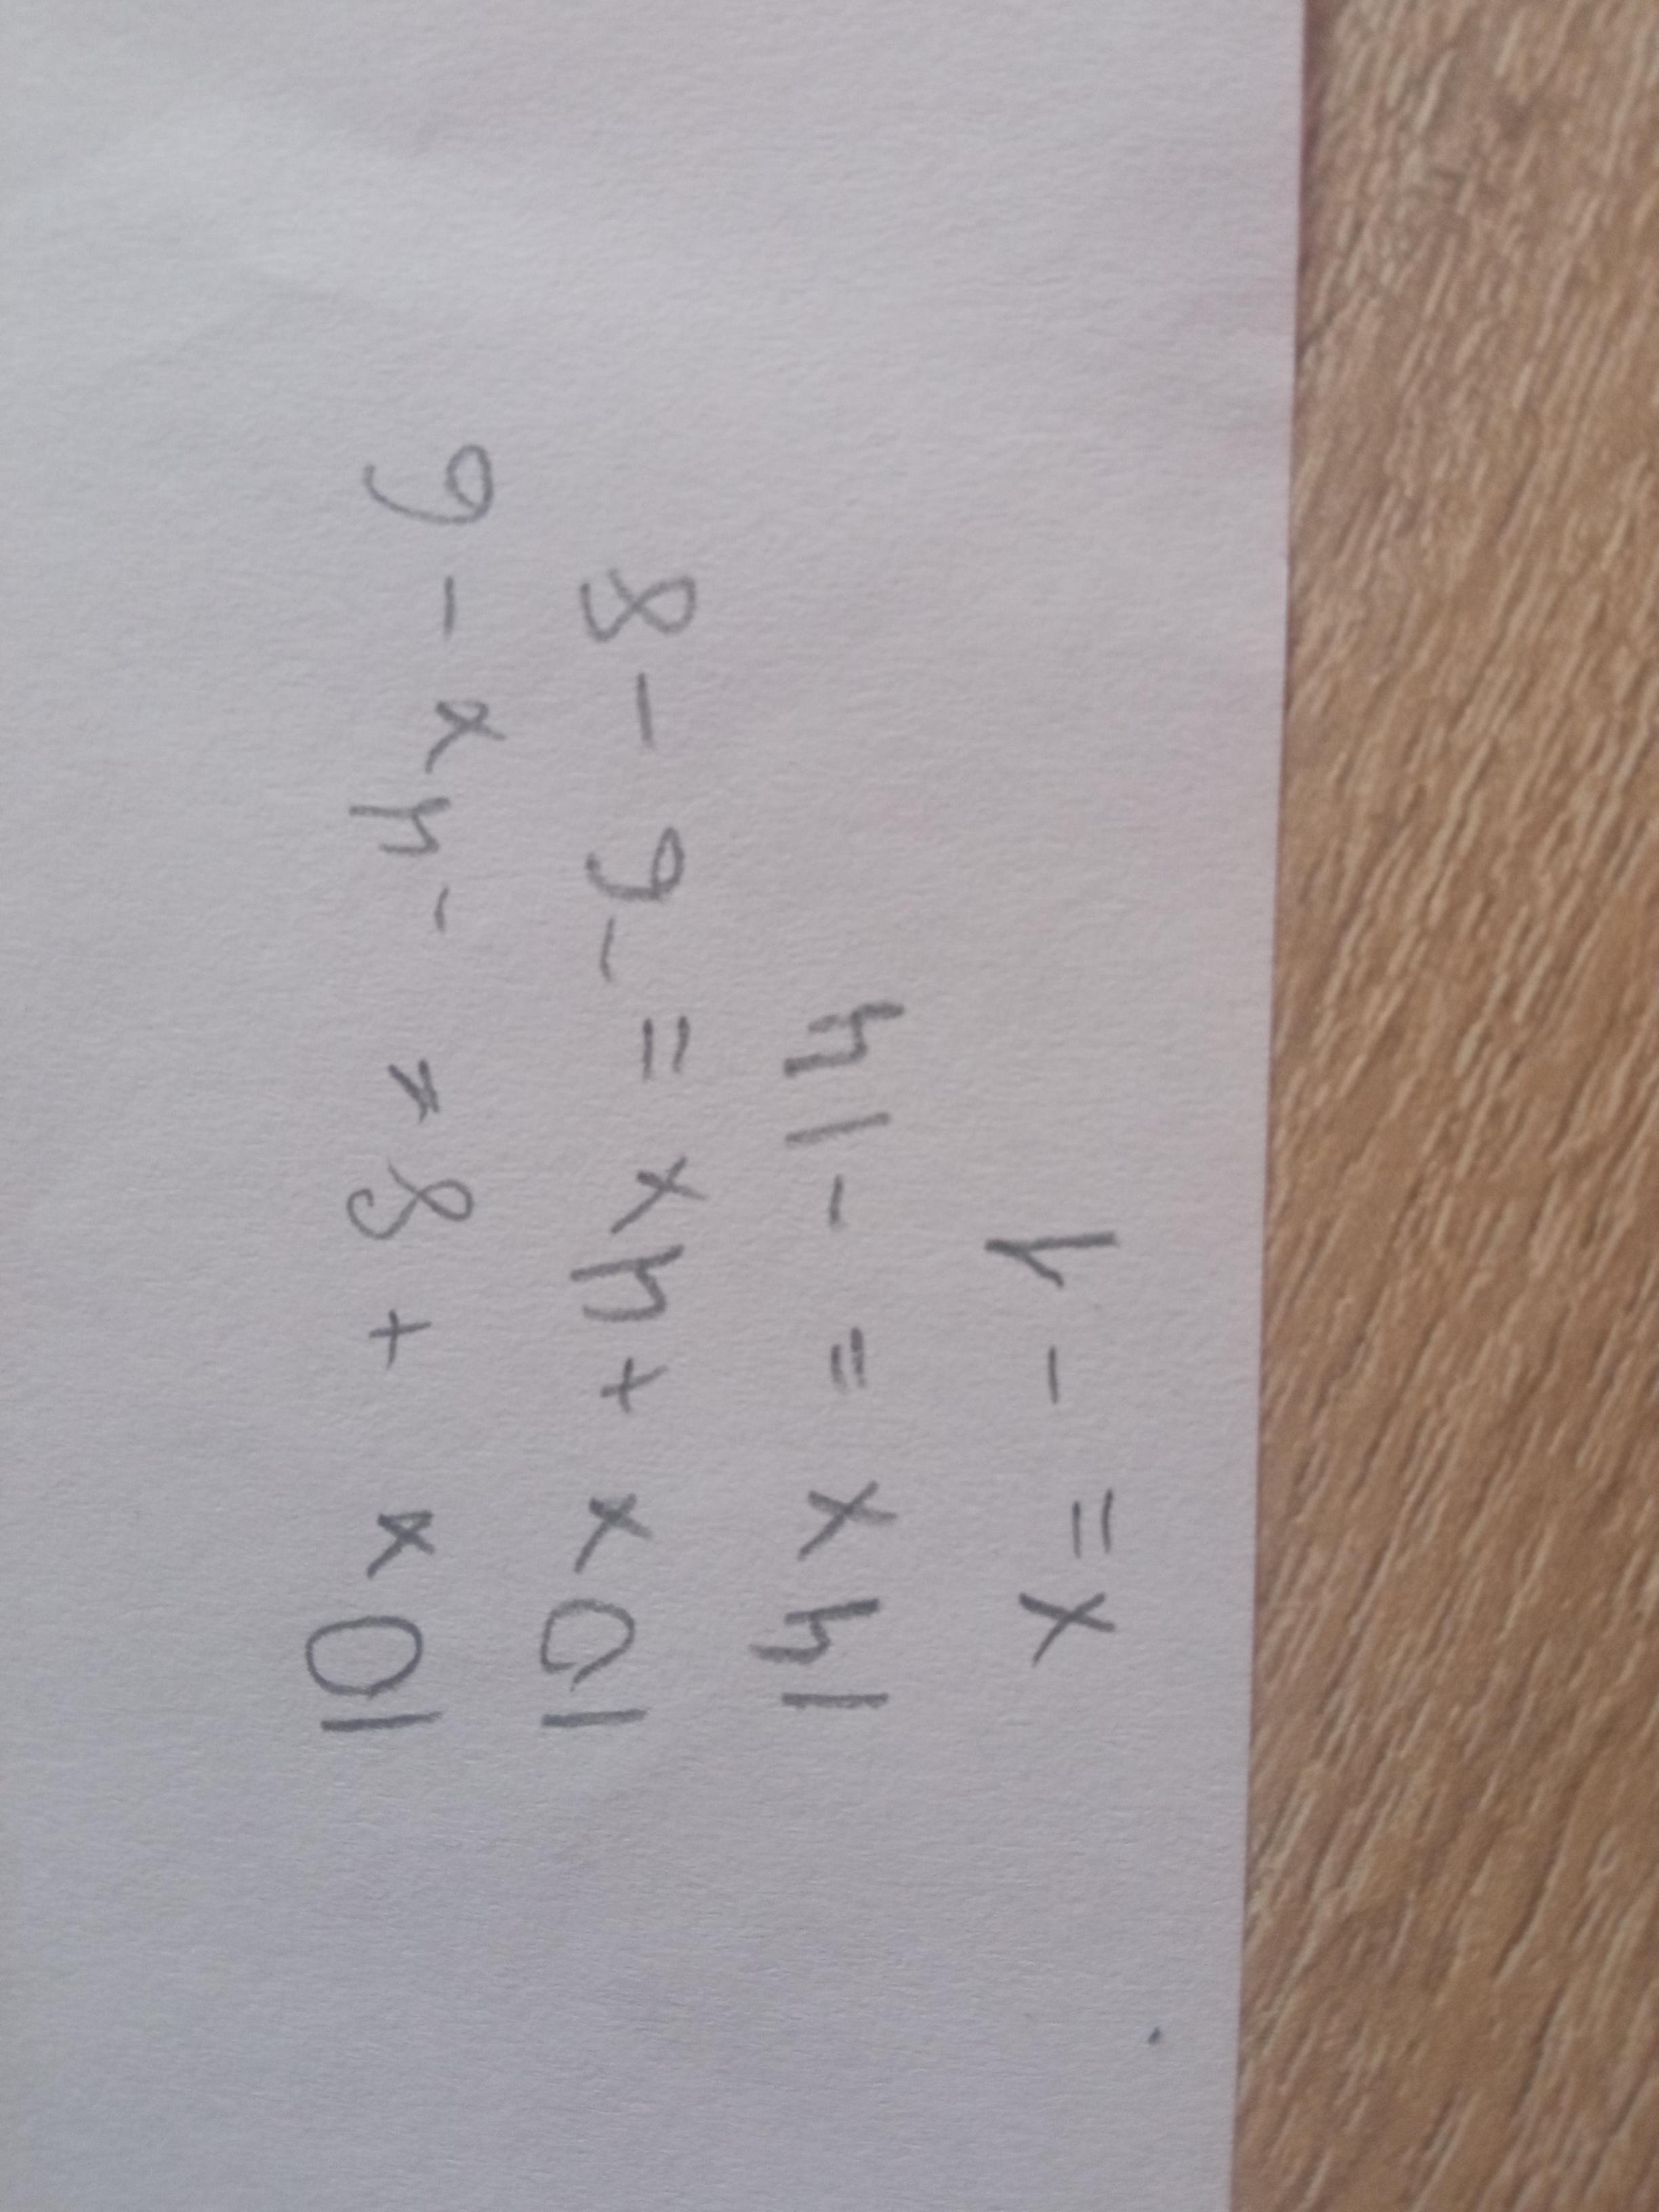 10x + 8 = -4x - 6
10x + 4x = -6 - 8
14x = -14
x = -1